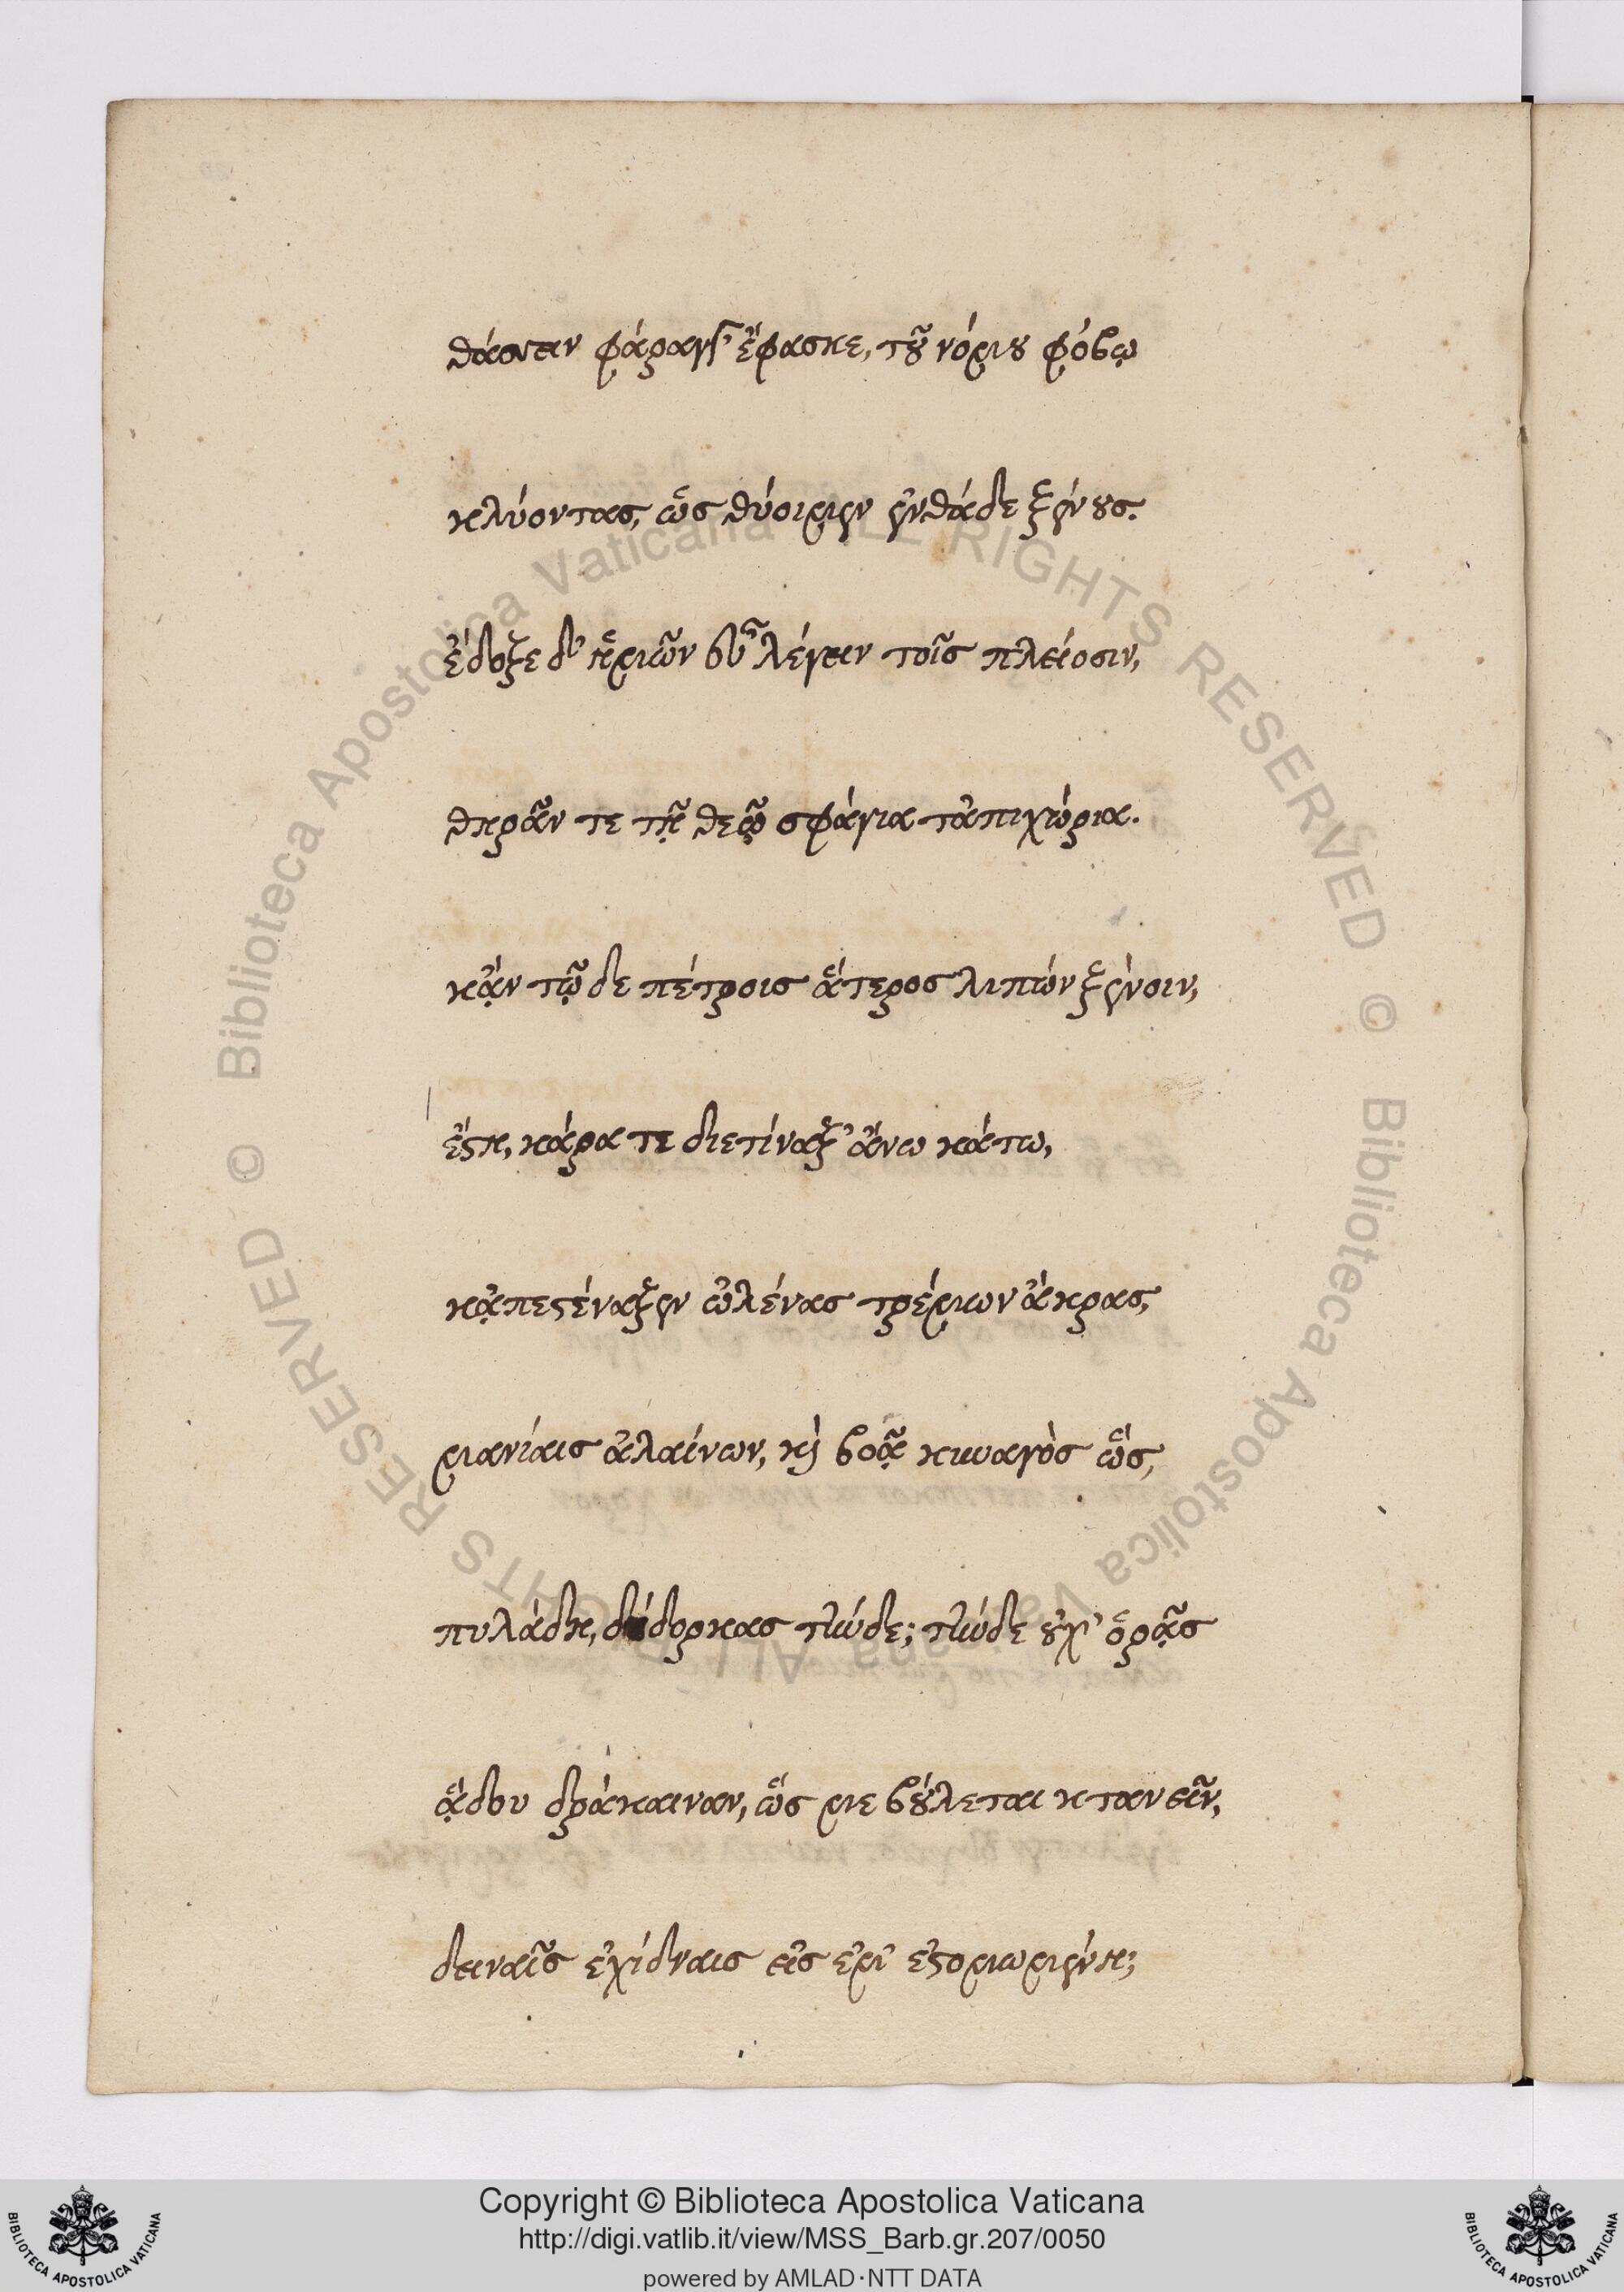 θάσσειν φάραγγ' ἔφασκε, τοῦ νόμου φόβῳ
κλύοντας, ὡς θύοιμεν ἐνθάδε ξένους.
ἔδοξε δ' ἡμῶν εὖ λέγειν τοῖς πλείοσιν,
θηρᾶν τε τῇ θεῷ σφάγια τἀπιχώρια.
κᾀν τῷδε πέτροις ἅτερος λιπών ξένοιν,
ἔστη, κάρα τε διετίναξ' ἄνω κάτω,
κᾀπεστέναξεν ὠλένας τρέμων ἄκρας,
μανίαις ἀλαίνων, καὶ βοᾷ κυναγὸς ὥς,
πυλάδη, δέδορκας τήνδε; τήνδε οὐχ' ὁρᾷς
ᾅδου δράκαιναν, ὥς με βούλεται κτανεῖν,
δειναῖς ἐχίδναις εἰς ἔμ' ἐστομωμένη;
Biblioteca Apostolica Vaticana © ALL RIGHTS RESERVED © Biblioteca Apostolica Vaticana ALL RIGHTS RESERVED ©
Copyright © Biblioteca Apostolica Vaticana
http://digi.vatlib.it/view/MSS_Barb.gr.207/0050
powered by AMLAD·NTT DATA
BIBLIOTECA APOSTOLICA VATICANA
BIBLIOTECA APOSTOLICA VATICANA